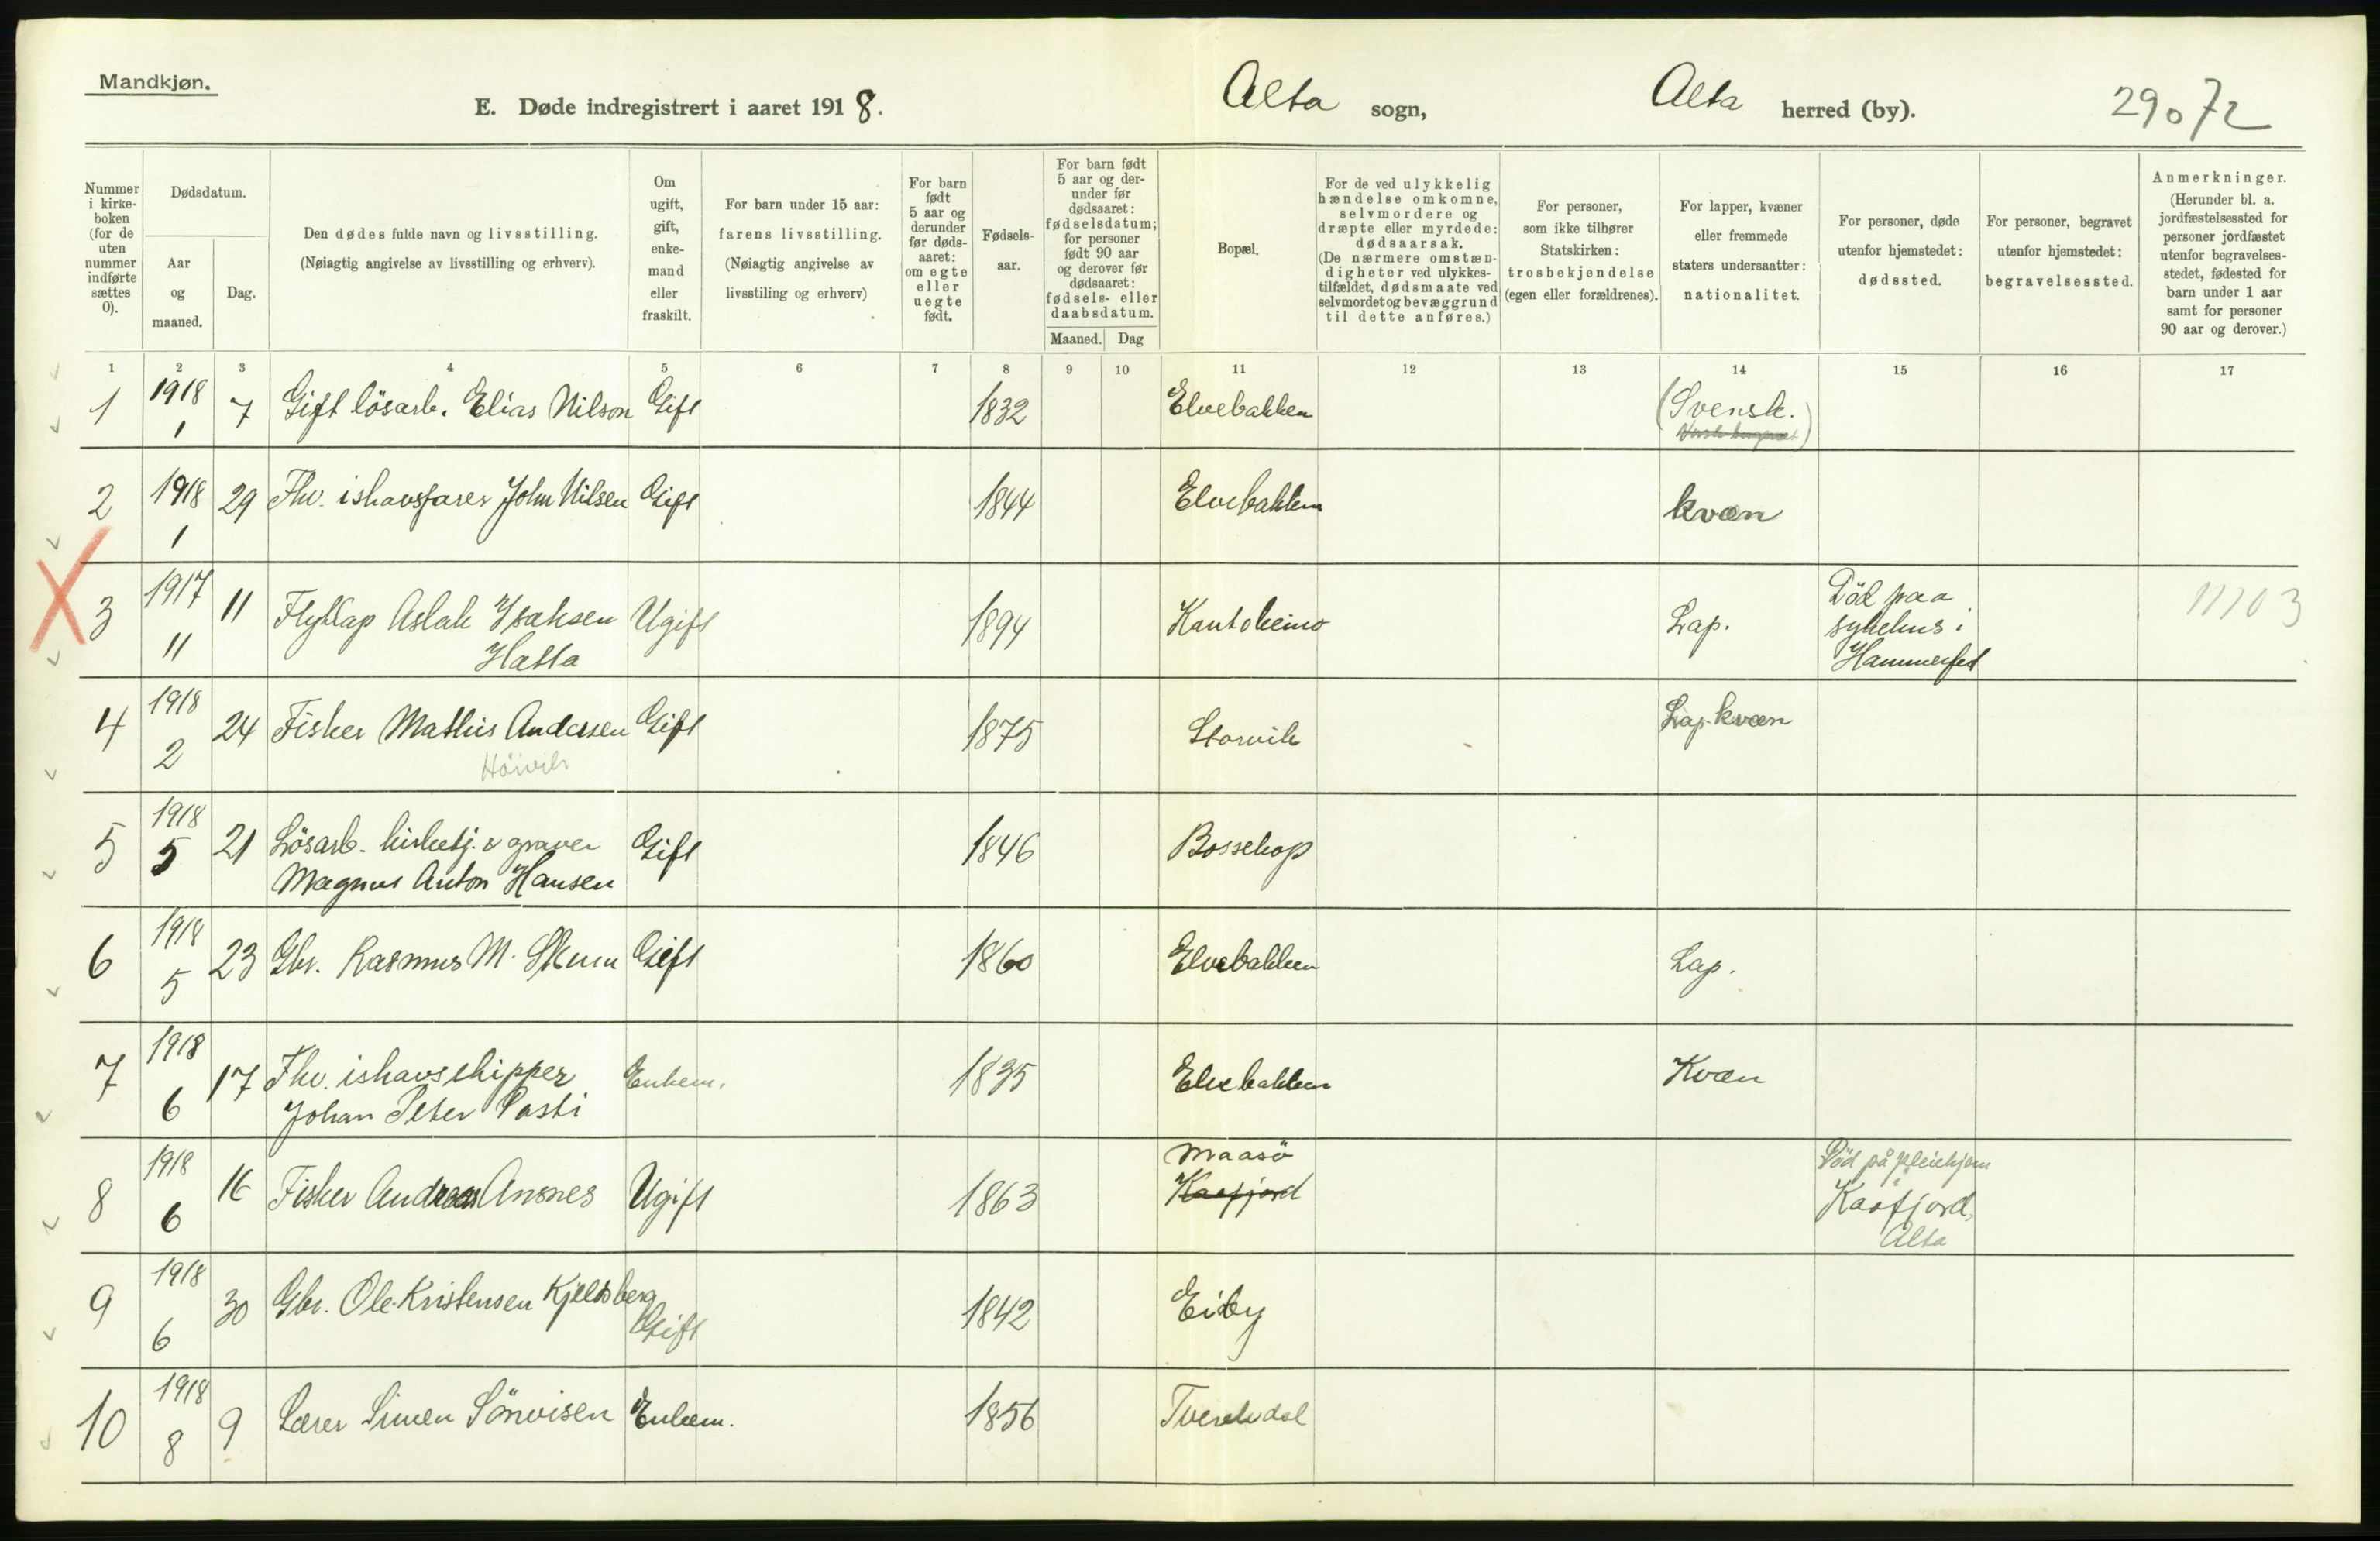 Mandkjøn.
E. Døde indregistrert i aaret 1918.
Alta sogn,
Alta herred (by).
29072
Nummer i kirke-boken (for de uten nummer indførte sættes 0).
Dødsdatum.
Aar og maaned.
Dag.
Den dødes fulde navn og livsstilling.
(Nøiagtig angivelse av livsstilling og erhverv).
Om ugift, gift, enke-mand eller fraskilt.
For barn under 15 aar:
farens livsstilling.
(Nøiagtig angivelse av livsstiling og erhverv)
For barn født 5 aar og derunder før døds-aaret: om egte eller uegte født.
Fødsels-aar.
For barn født 5 aar og der-under før dødsaaret: fødselsdatum; for personer født 90 aar og derover før dødsaaret: fødsels- eller daabsdatum.
Maaned. Dag
Bopæl.
For de ved ulykkelig hændelse omkomne, selvmordere og dræpte eller myrdede: dødsaarsak.
(De nærmere omstæn-digheter ved ulykkes-tilfældet, dødsmaate ved selvmordet og bevæggrund til dette anføres.)
For personer, som ikke tilhører Statskirken: trosbekjendelse (egen eller forældrenes).
For lapper, kvæner eller fremmede staters undersaatter: nationalitet.
For personer, døde utenfor hjemstedet: dødssted.
For personer, begravet utenfor hjemstedet: begravelsessted.
Anmerkninger.
(Herunder bl. a. jordfæstelsessted for personer jordfæstet utenfor begravelses-stedet, fødested for barn under 1 aar samt for personer 90 aar og derover.)
1 2 3 4 5 6 7 8 9 10 11 12 13 14 15 16 17
1 1918 1 7 Gift lösarb. Elias Nilson Gift 1832 Elvebakken (Svensk.)
2 1918 1 29 Fhv. ishavsfarer John Nilsen Gift 1844 Elvebakken kvæn
3 1917 11 11 Flytlap Aslak Isaksen Ugift 1894 Kautokeino Lap. Död paa sykehus i Hammerfest 11103
Hætta
4 1918 2 24 Fisker Mathis Andersen Gift 1875 Storvik Lap-kvæn
Höivik
5 1918 5 21 Lösarb. kirketj. & graver Gift 1846 Bossekop
Magnus Anton Hansen
6 1918 5 23 Gbr. Rasmus M. Skum Gift 1860 Elvebakken Lap.
7 1918 6 17 Fhv. ishavsskipper Enkem. 1835 Elvebakken Kvæn
Johan Peter Posti
8 1918 6 16 Fisker Andreas Ansnes Ugift 1863 Maasö Kaafjord Död på pleiehjem Kaafjord, Alta
9 1918 6 30 Gbr. Ole Kristensen Kjeldsberg Gift 1842 Eiby
10 1918 8 9 Lærer Simen Sönvisen Enkem. 1856 Tverelvdal